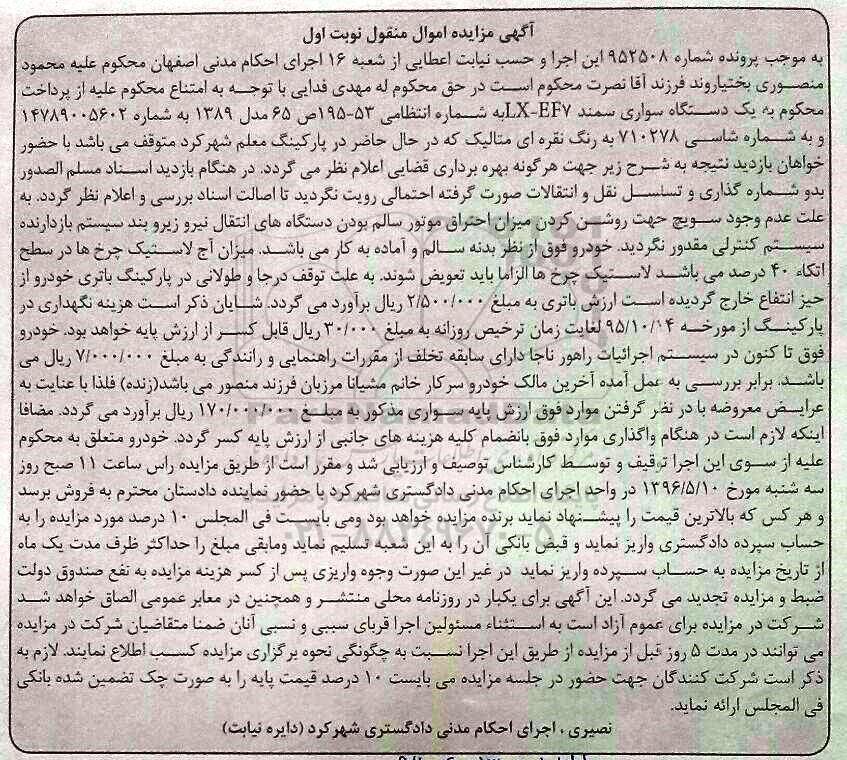 آگهی مزایده اموال منقول نوبت اول
به موجب پرونده شماره ۹۵۲۵۰۸ این اجرا و حسب نیابت اعطایی از شعبه ۱۶ اجرای احکام مدنی اصفهان محکوم علیه محمود
منصوری بختیاروند فرزند آقا نصرت محکوم است در حق محکوم له مهدی فدایی با توجه به امتناع محکوم علیه از پرداخت
محکوم به یک دستگاه سواری سمند LX-EF۷به شماره انتظامی ۵۳-۱۹۵ص ۶۵ مدل ۱۳۸۹ به شماره ۱۴۷۸۹۰۰۵۶۰۲
و به شماره شاسی ۷۱۰۲۷۸ به رنگ نقره ای متالیک که در حال حاضر در پارکینگ معلم شهرکرد متوقف می باشد با حضور
خواهان بازدید نتیجه به شرح زیر جهت هرگونه بهره برداری قضایی اعلام نظر می گردد. در هنگام بازدید اسناد مسلم الصدور
بدو شماره گذاری و تسلسل نقل و انتقالات صورت گرفته احتمالی رویت نگردید تا اصالت اسناد بررسی و اعلام نظر گردد. به
علت عدم وجود سویچ جهت روشن کردن میزان احتراق موتور سالم بودن دستگاه های انتقال نیرو زیرو بند سیستم بازدارنده
سیستم کنترلی مقدور نگردید. خودرو فوق از نظر بدنه سالم و آماده به کار می باشد. میزان آج لاستیک چرخ ها در سطح
اتکاء ۴۰ درصد می باشد لاستیک چرخ ها الزاما باید تعویض شوند. به علت توقف درجا و طولانی در پارکینگ باتری خودرو از
حیز انتفاع خارج گردیده است ارزش باتری به مبلغ ۲/۵۰۰/۰۰۰ ریال برآورد می گردد. شایان ذکر است هزینه نگهداری در
پارکینگ از مورخه ۹۵/۱۰/۱۴ لغایت زمان ترخیص روزانه به مبلغ ۳۰/۰۰۰ ریال قابل کسر از ارزش پایه خواهد بود. خودرو
فوق تا کنون در سیستم اجرائیات راهور ناجا دارای سابقه تخلف از مقررات راهنمایی و رانندگی به مبلغ ۷/۰۰۰/۰۰۰ ریال می
باشد. برابر بررسی به عمل آمده آخرین مالک خودرو سرکار خانم مشیانا مرزبان فرزند منصور می باشد(زنده) فلذا با عنایت به
عرایض معروضه با در نظر گرفتن موارد فوق ارزش پایه سواری مذکور به مبلغ ۱۷۰/۰۰۰/۰۰۰ ریال برآورد می گردد. مضافا
اینکه لازم است در هنگام واگذاری موارد فوق بانضمام کلیه هزینه های جانبی از ارزش پایه کسر گردد. خودرو متعلق به محکوم
علیه از سوی این اجرا توقیف و توسط کارشناس توصیف و ارزیابی شد و مقرر است از طریق مزایده راس ساعت ۱۱ صبح روز
سه شنبه مورخ ۱۳۹۶/۵/۱۰ در واحد اجرای احکام مدنی دادگستری شهرکرد با حضور نماینده دادستان محترم به فروش برسد
و هر کس که بالاترین قیمت را پیشنهاد نماید برنده مزایده خواهد بود ومی بایست فی المجلس ۱۰ درصد مورد مزایده را به
حساب سپرده دادگستری واریز نماید و قبض بانکی آن را به این شعبه تسلیم نماید ومابقی مبلغ را حداکثر ظرف مدت یک ماه
از تاریخ مزایده به حساب سپرده واریز نماید در غیر این صورت وجوه واریزی پس از کسر هزینه مزایده به نفع صندوق دولت
ضبط و مزایده تجدید می گردد. این آگهی برای یکبار در روزنامه محلی منتشر و همچنین در معابر عمومی الصاق خواهد شد
شرکت در مزایده برای عموم آزاد است به استثناء مسئولین اجرا قربای سببی و نسبی آنان ضمنا متقاضیان شرکت در مزایده
می توانند در مدت ۵ روز قبل از مزایده از طریق این اجرا نسبت به چگونگی نحوه برگزاری مزایده کسب اطلاع نمایند. لازم به
ذکر است شرکت کنندگان جهت حضور در جلسه مزایده می بایست ۱۰ درصد قیمت پایه را به صورت چک تضمین شده بانکی
فی المجلس ارائه نماید.
نصیری ، اجرای احکام مدنی دادگستری شهرکرد (دایره نیابت)